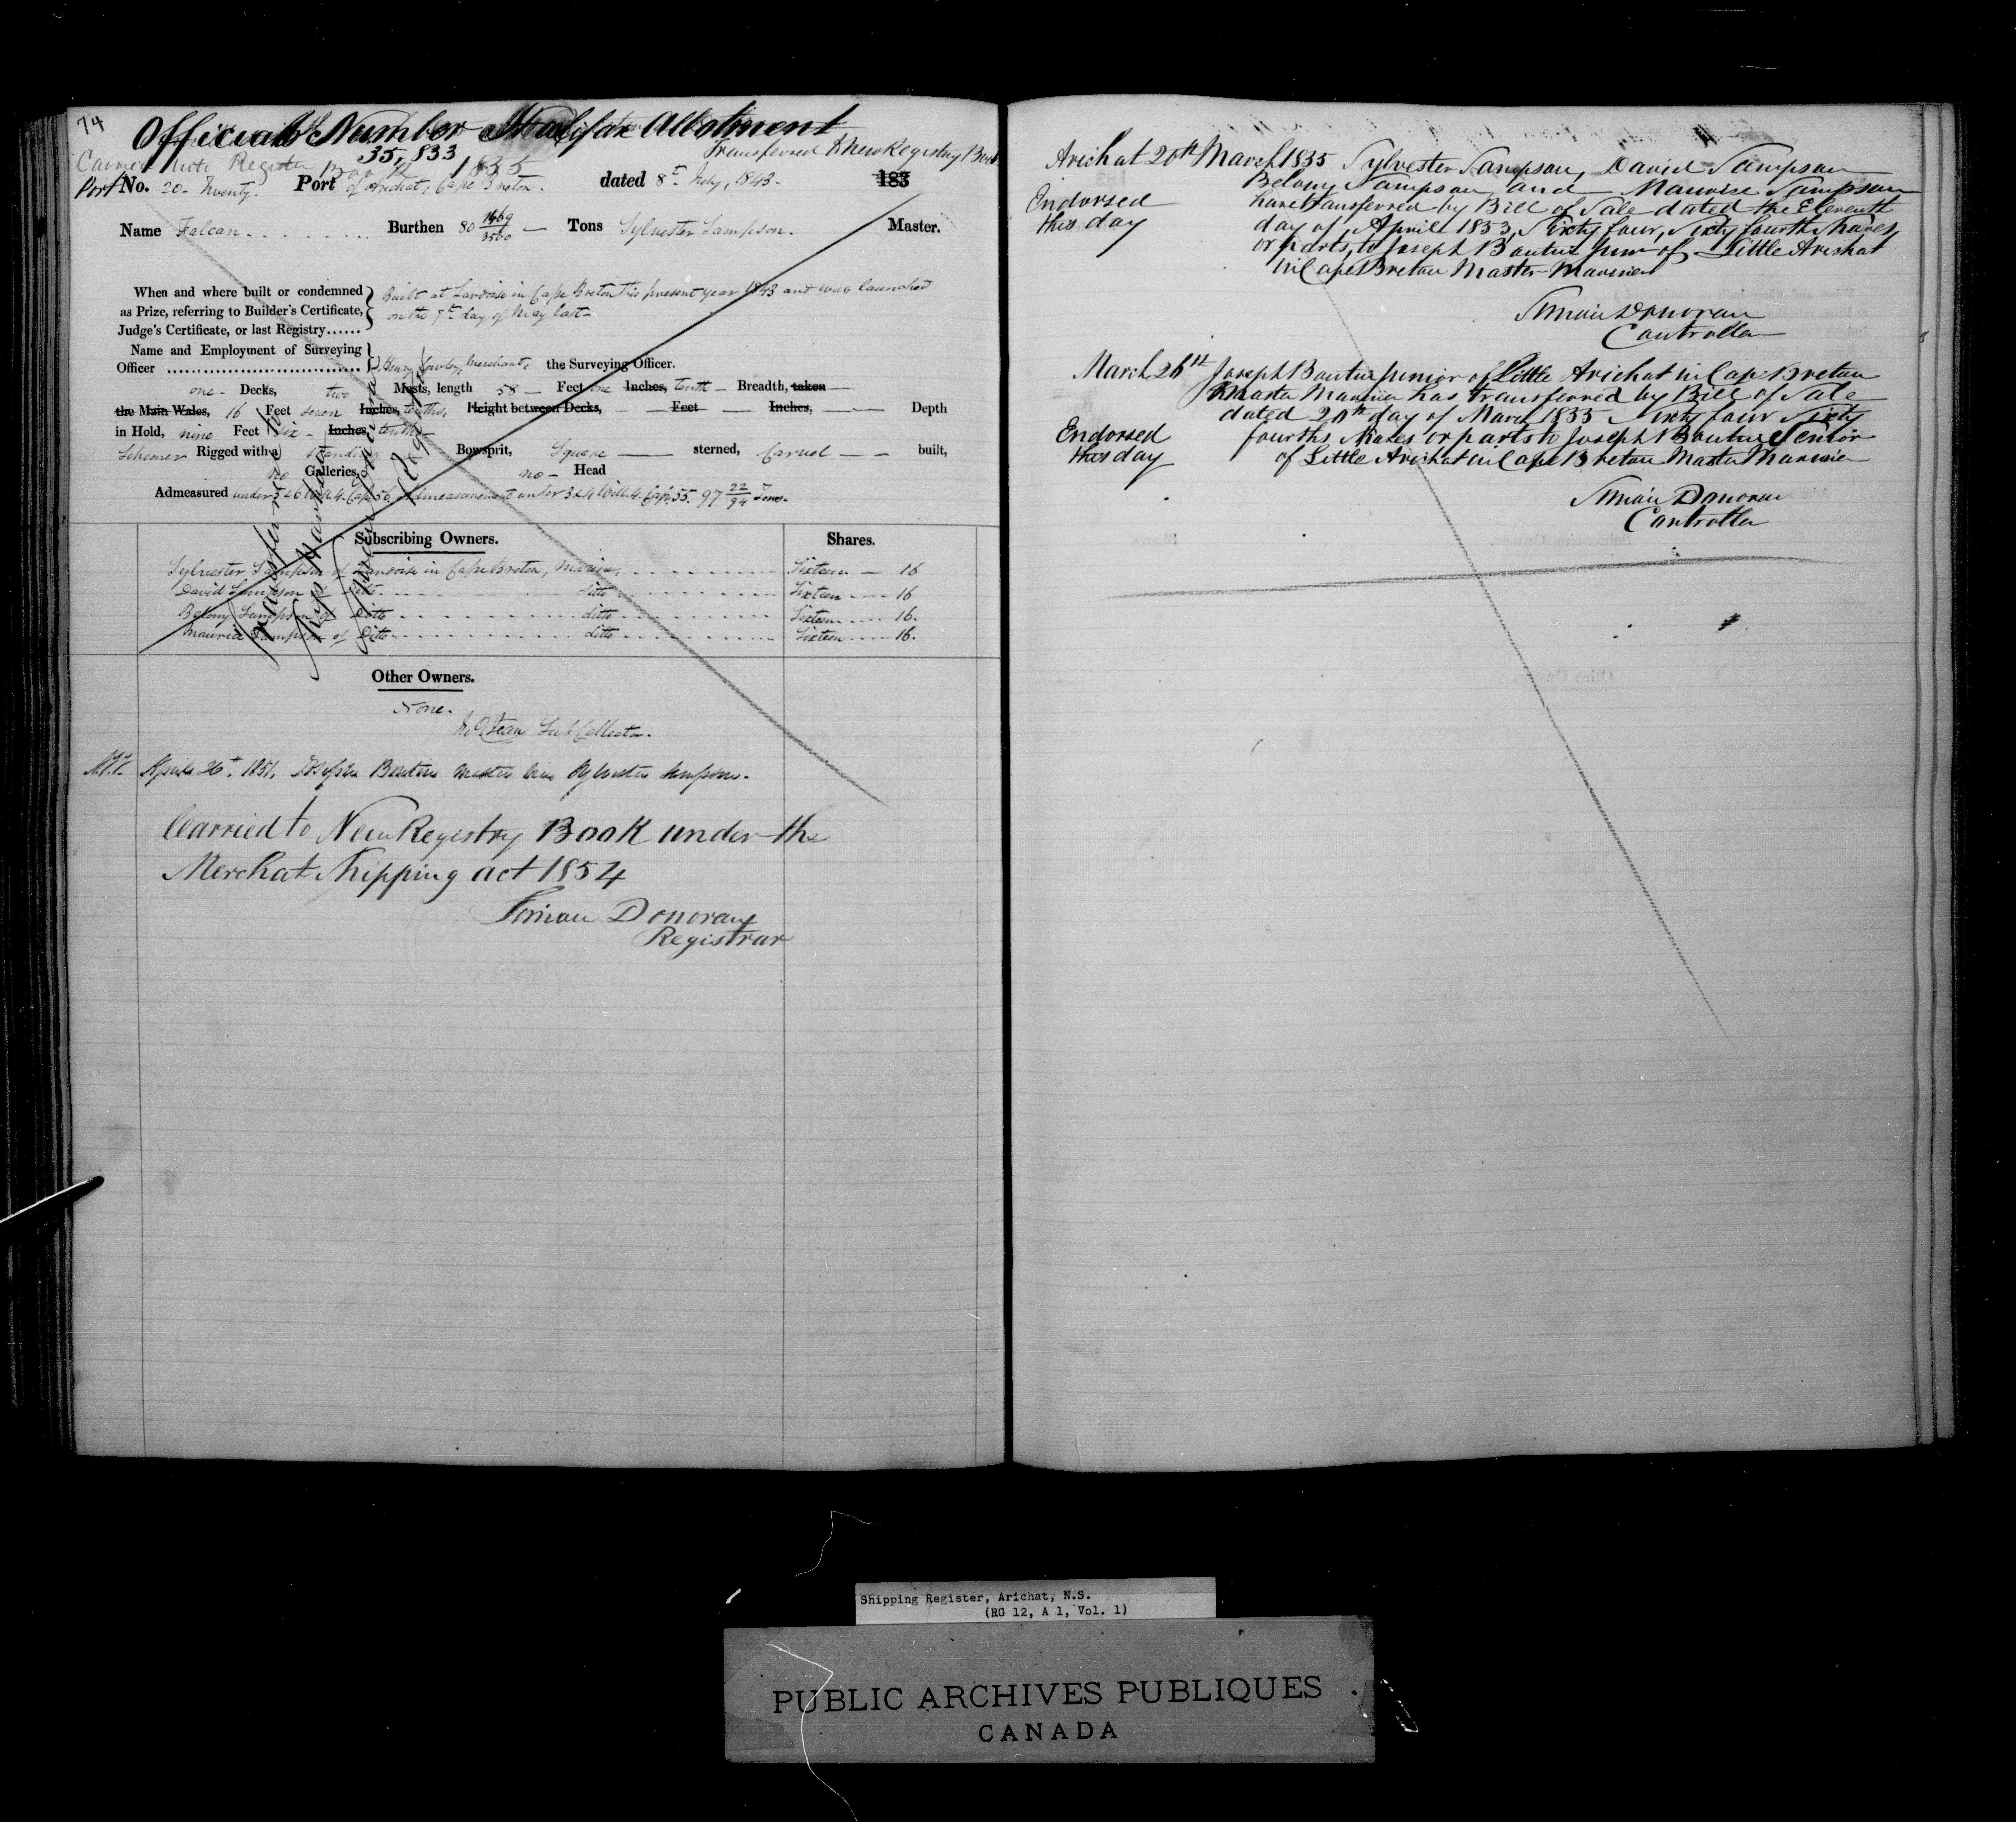 74
Official Number Halifax Allotment
35,833
Transferred to New Registry Book
Carried into Register Book 1855
Port No. 20- Twenty. Port of Arichat, Cape Breton. dated 8th July, 1843. 183
Name Falcan Burthen 80 1469/3500 Tons Sylvester Sampson. Master.
When and where built or condemned as Prize, referring to Builder's Certificate, Judge's Certificate, or last Registry......
Built at Lardoise in Cape Breton this present year 1843 and was launched
on the 7th day of May last-
Name and Employment of Surveying
Officer Henry Merchant, the Surveying Officer.
one - Decks, two Masts, length 58 - Feet one Inches, tenth - Breadth, taken
the Main Wales, 16 Feet seven Inches, tenths, Height between Decks, Feet Inches, Depth
in Hold, nine Feet six - Inches, tenths
Schooner Rigged with a standing Bowsprit, Square sterned, Carvel built,
no Galleries, no - Head
Admeasured under 5 & 6 Will. 4. Cap. 56. Admeasurement under 3 & 4 Will. 4. Cap. 55. 97 22/94 Tons.
Subscribing Owners. Shares.
Sylvester Sampson of Lardoise in Cape Breton, Mariner Sixteen 16
David Sampson of Ditto ditto Sixteen 16
Belony Sampson of Ditto ditto Sixteen 16.
Maurice Sampson of Ditto ditto Sixteen 16.
Other Owners.
None.
Sub Collector.
April 26th, 1851, Joseph Boutin master vice Sylvester Sampson.
Carried to New Registry Book under the
Merchat Shipping act 1854
Simon Donovan
Registrar
Arichat 20th March 1855 Sylvester Sampson, David Sampson
Belony Sampson and Maurice Sampson
Endorsed have transferred by Bill of Sale dated the Eleventh
this day day of April 1853, Sixty four, Sixty fourth Shares
or parts, to Joseph Boutin Junr of Little Arichat
in Cape Breton Master Mariner
Simon Donovan
Controller
March 26th Joseph Boutin Junior of Little Arichat in Cape Breton
Master Mariner has transferred by Bill of Sale
dated 20th day of March 1855 Sixty four Sixty
Endorsed fourths Shares or parts to Joseph Boutin Senior
this day of Little Arichat in Cape Breton Master Mariner
Simon Donovan
Controller
Shipping Register, Arichat, N.S.
(RG 12, A 1, Vol. 1)
PUBLIC ARCHIVES PUBLIQUES
CANADA